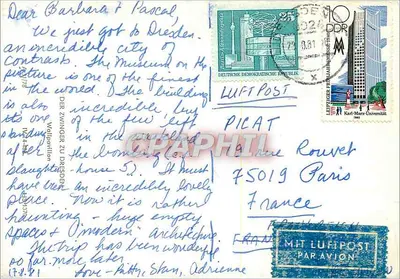 Dear Barbara & Pascal,
We just got to Dresden.
an incredibly city of
contrasts. The museum on the
picture is one of the finest
in the world. The building
is also incredible but
its one of the few left
standing in the
after the bombing (on
slaughter-house 5). It must
have been an incredibly lovely
place. Now it is rather
haunting - huge empty
spaces & modern architecture.
The trip has been wonderful
so far. more later.
Love - Kitty, Stan, Adrienne
DER ZWINGER ZU DRESDEN
Wallpavillon
25
DEUTSCHE DEMOKRATISCHE REPUBLIK
10
DDR
MM
Karl-Marx-Universität
LUFTPOST
PILAT
9 rue Rouvet
75019 Paris
France
MIT LUFTPOST
PAR AVION
CPAPHIL